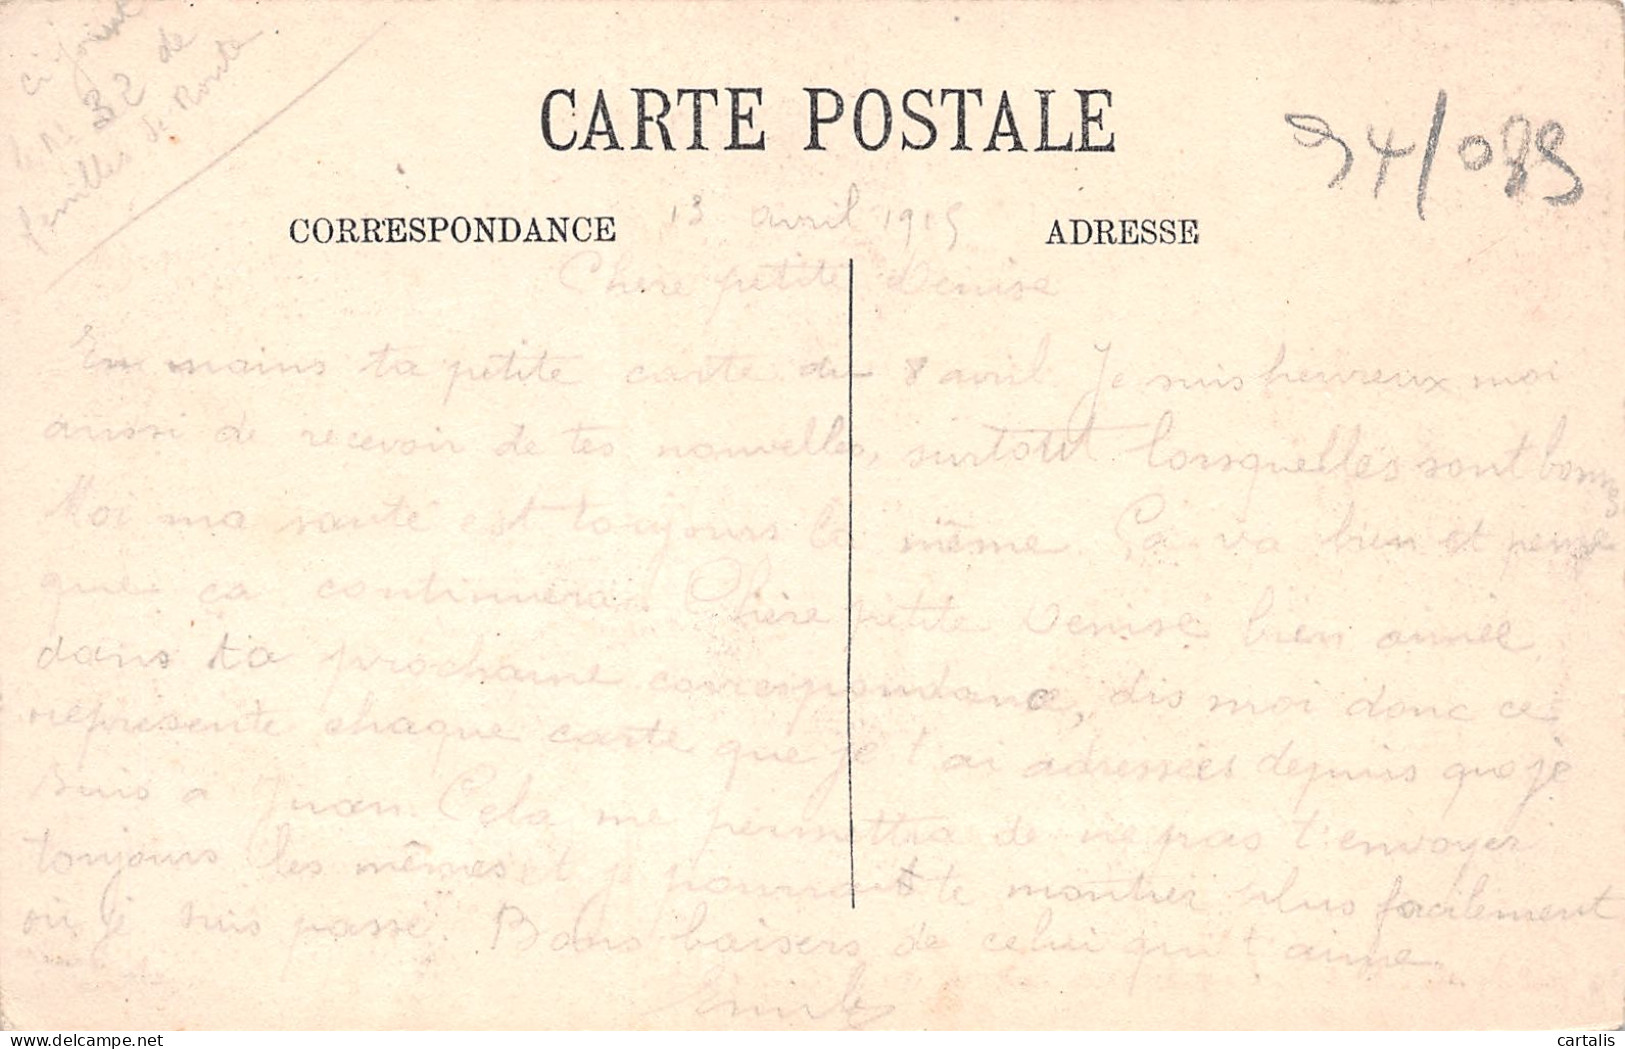 ci joint
le No 32 de
familles de Route
CARTE POSTALE
94/089
CORRESPONDANCE
ADRESSE
13 avril 1915
Chere petite Denise
En mains ta petite carte du 8 avril. Je suis heureux moi
aussi de recevoir de tes nouvelles, surtout lorsquelles sont bonnes
Moi ma santé est toujours la même. Ça va bien et pense
que ça continuera. Chère petite Denise bien aimée
dans ta prochaine correspondance, dis moi donc ce
represente chaque carte que je t'ai adressées depuis que je
suis a Juan. Cela me permettra de ne pas t'envoyer
toujours les mêmes et je pourrait te montrer plus facilement
où je suis passé. Bons baisers de celui qui t'aime
Emile
delcampe.net
cartalis